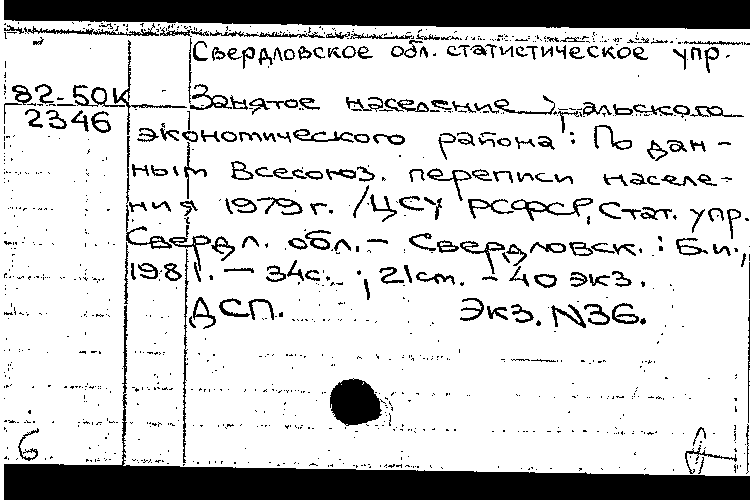 Свердловское обл. статистическое упр.
82-50к
2346
Занятое население Уральского
экономического района: По дан-
ным Всесоюз. переписи населе-
ния 1979г. /ЦСУ РСФСР, Стат. упр.
Свердл. обл.- Свердловск. : Б.и.,
1981. - 34с. ; 21см. - 40 экз.
ДСП. Экз. N36.
6